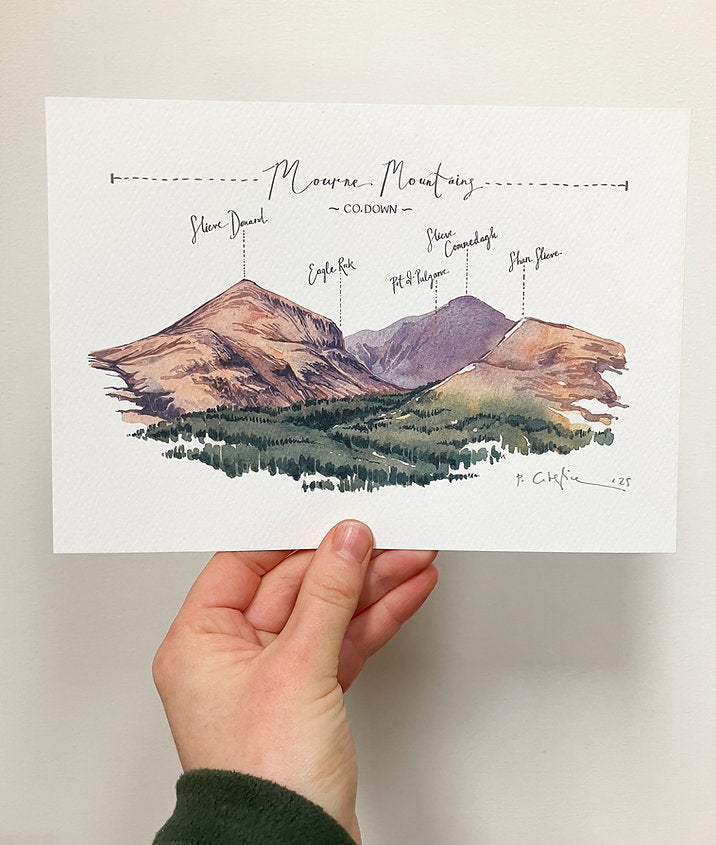 Mourne Mountains
~ CO. DOWN ~
Slieve Donard
Eagle Rock
Pot of Pulgarve
Slieve
Commedagh
Shan Slieve
P.
'25